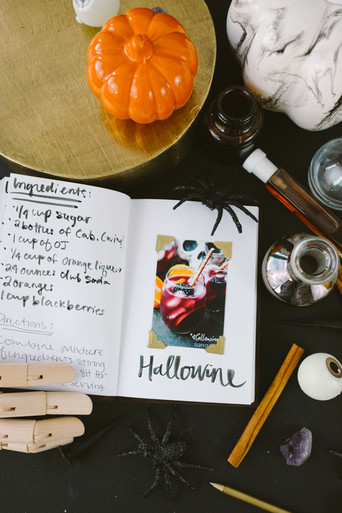 Ingredients:
· 1/4 cup sugar
· 2 bottles of Cab. (wine)
· 1 cup of OJ
· 1/4 cup of orange liqueur
· 24 ounces club soda
· 2 oranges
· 1 cup blackberries
Directions:
Combine mixture
(ingredients
sit for
serving
"Hallowine"
Hallowine